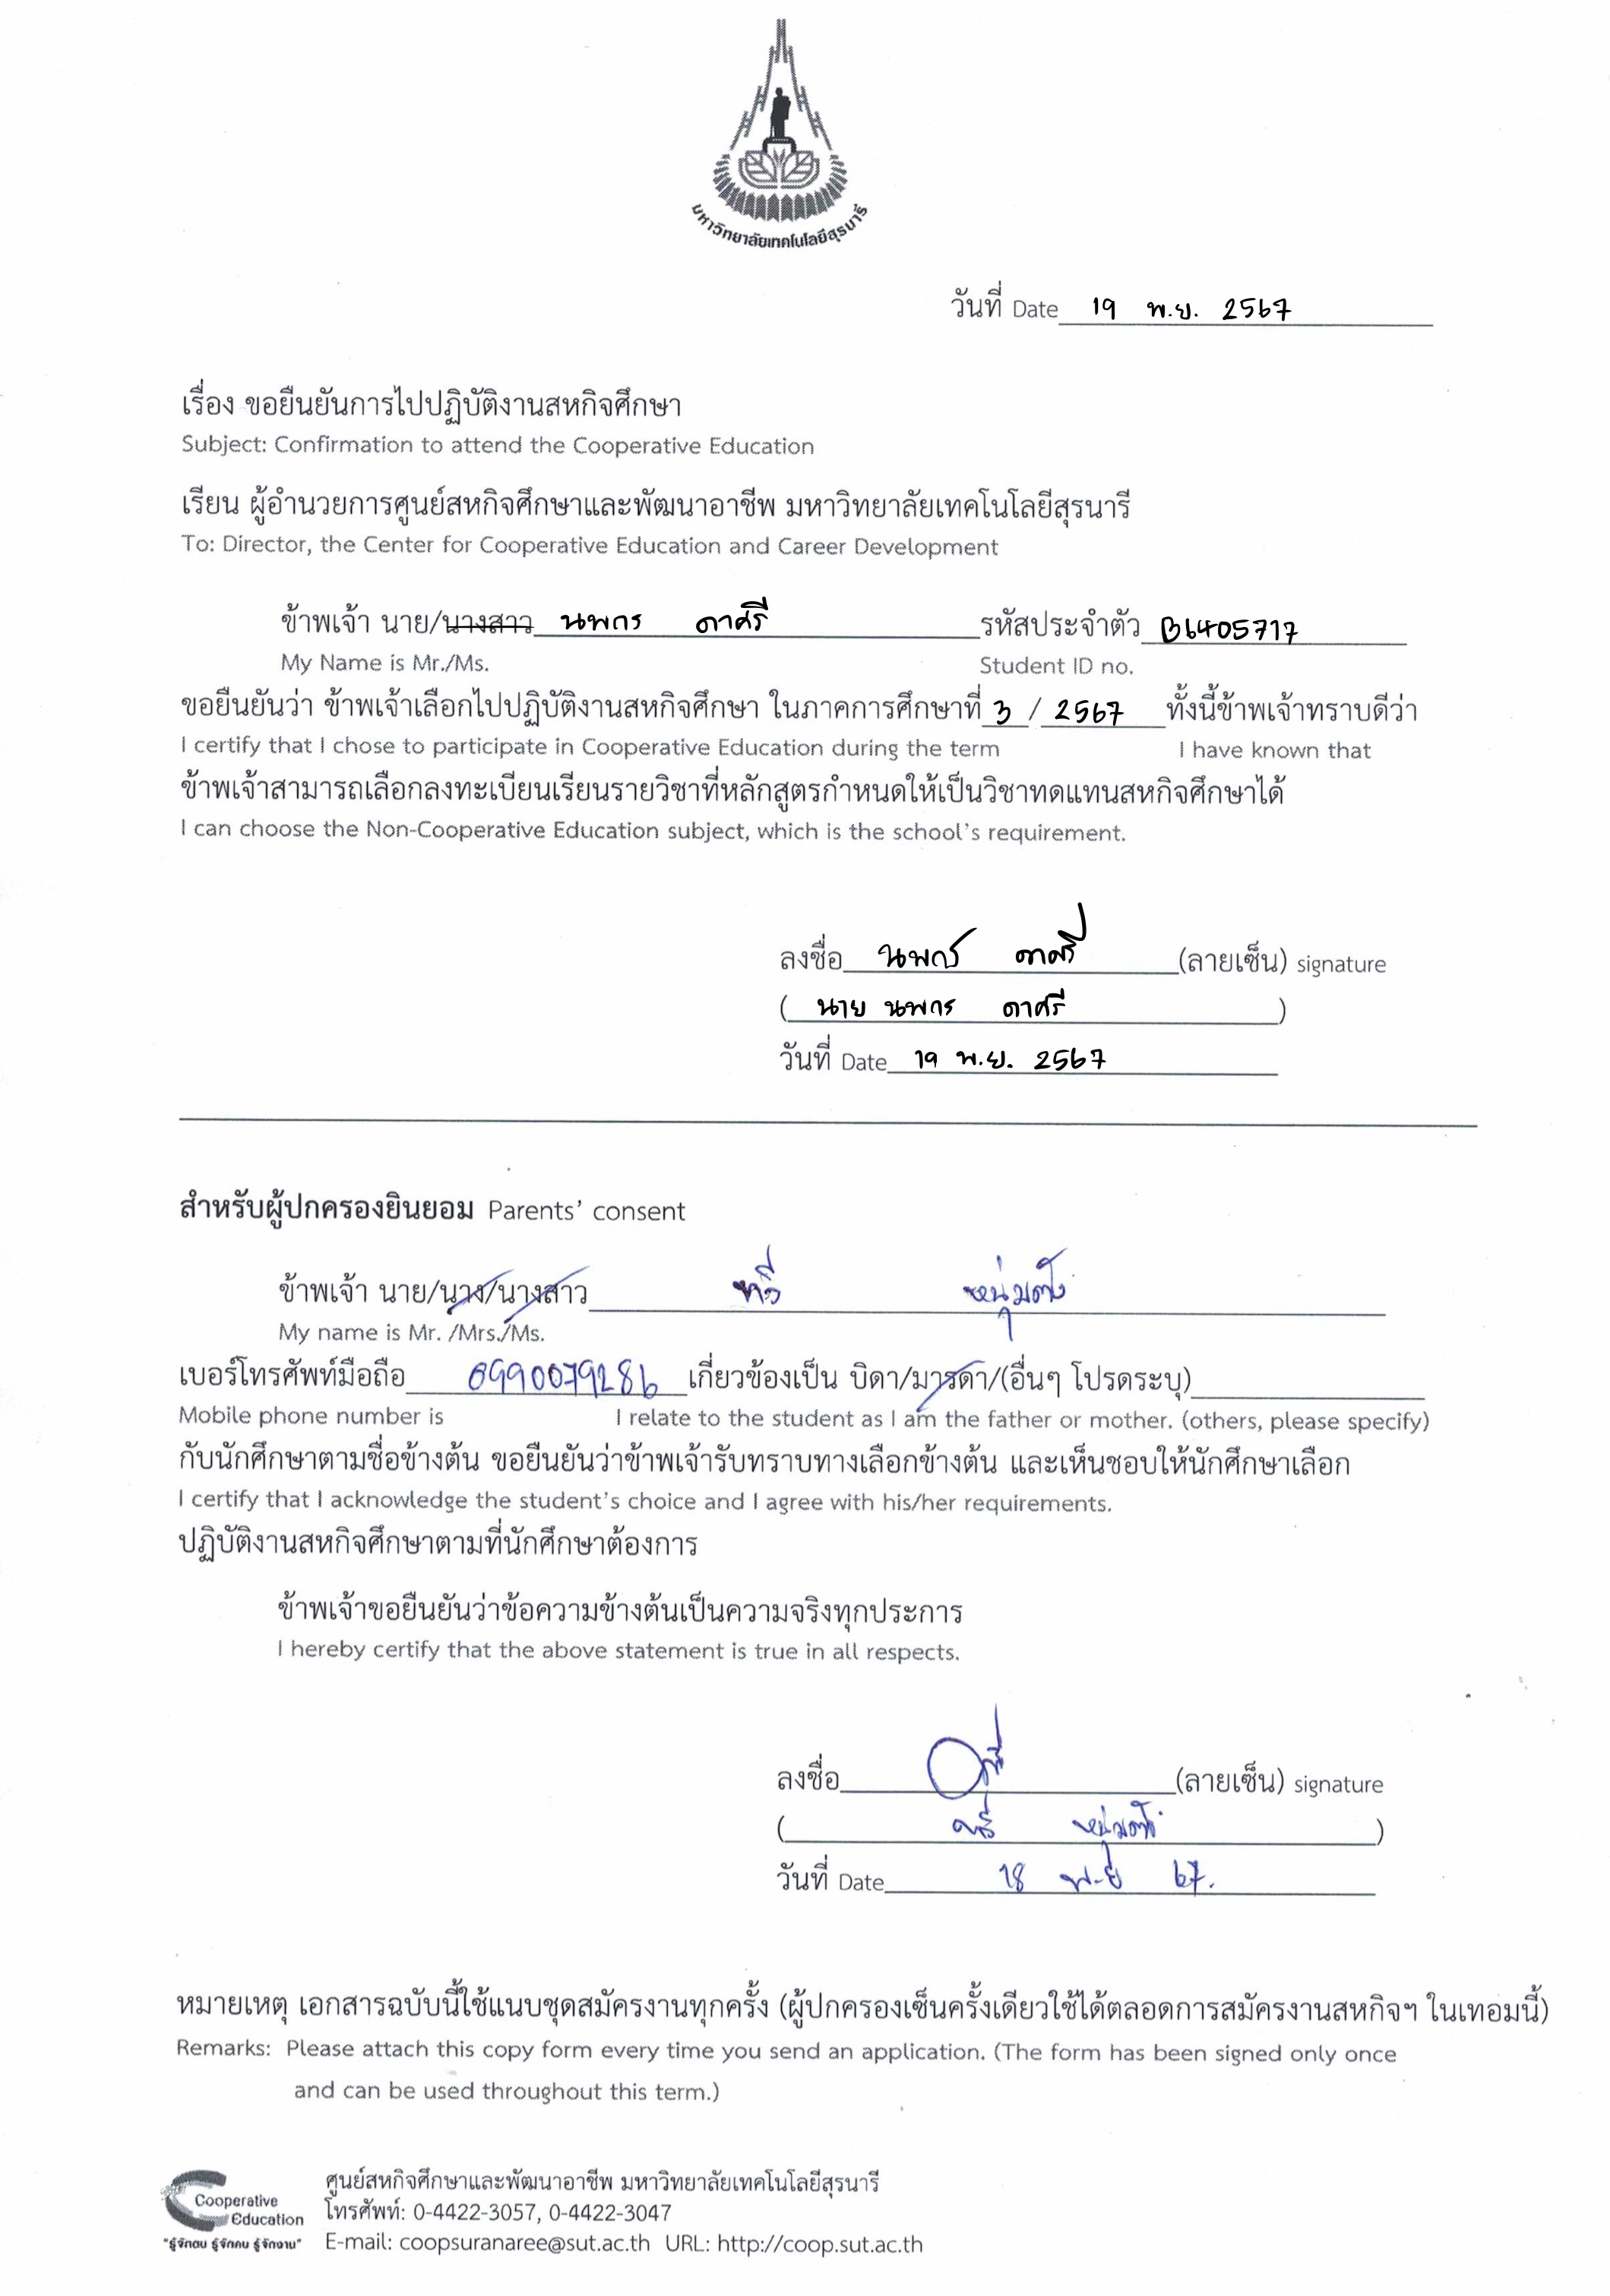 มหาวิทยาลัยเทคโนโลยีสุรนารี
วันที่ Date 19 พ.ย. 2567
เรื่อง ขอยืนยันการไปปฏิบัติงานสหกิจศึกษา
Subject: Confirmation to attend the Cooperative Education
เรียน ผู้อำนวยการศูนย์สหกิจศึกษาและพัฒนาอาชีพ มหาวิทยาลัยเทคโนโลยีสุรนารี
To: Director, the Center for Cooperative Education and Career Development
ข้าพเจ้า นาย/นางสาว นพกร ดาศรี รหัสประจำตัว B6405717
My Name is Mr./Ms. Student ID no.
ขอยืนยันว่า ข้าพเจ้าเลือกไปปฏิบัติงานสหกิจศึกษา ในภาคการศึกษาที่ 3 / 2567 ทั้งนี้ข้าพเจ้าทราบดีว่า
I certify that I chose to participate in Cooperative Education during the term I have known that
ข้าพเจ้าสามารถเลือกลงทะเบียนเรียนรายวิชาที่หลักสูตรกำหนดให้เป็นวิชาทดแทนสหกิจศึกษาได้
I can choose the Non-Cooperative Education subject, which is the school's requirement.
ลงชื่อ นพกร ดาศรี (ลายเซ็น) signature
( นาย นพกร ดาศรี )
วันที่ Date 19 พ.ย. 2567
สำหรับผู้ปกครองยินยอม Parents' consent
ข้าพเจ้า นาย/นาง/นางสาว
My name is Mr. /Mrs./Ms.
เบอร์โทรศัพท์มือถือ 0990079286 เกี่ยวข้องเป็น บิดา/มารดา/(อื่นๆ โปรดระบุ)
Mobile phone number is I relate to the student as I am the father or mother. (others, please specify)
กับนักศึกษาตามชื่อข้างต้น ขอยืนยันว่าข้าพเจ้ารับทราบทางเลือกข้างต้น และเห็นชอบให้นักศึกษาเลือก
I certify that I acknowledge the student's choice and I agree with his/her requirements.
ปฏิบัติงานสหกิจศึกษาตามที่นักศึกษาต้องการ
ข้าพเจ้าขอยืนยันว่าข้อความข้างต้นเป็นความจริงทุกประการ
I hereby certify that the above statement is true in all respects.
ลงชื่อ (ลายเซ็น) signature
( )
วันที่ Date 18 พ.ย 67.
หมายเหตุ เอกสารฉบับนี้ใช้แนบชุดสมัครงานทุกครั้ง (ผู้ปกครองเซ็นครั้งเดียวใช้ได้ตลอดการสมัครงานสหกิจฯ ในเทอมนี้)
Remarks: Please attach this copy form every time you send an application. (The form has been signed only once
and can be used throughout this term.)
Cooperative Education
"รู้จักตน รู้จักคน รู้จักงาน"
ศูนย์สหกิจศึกษาและพัฒนาอาชีพ มหาวิทยาลัยเทคโนโลยีสุรนารี
โทรศัพท์: 0-4422-3057, 0-4422-3047
E-mail: coopsuranaree@sut.ac.th URL: http://coop.sut.ac.th